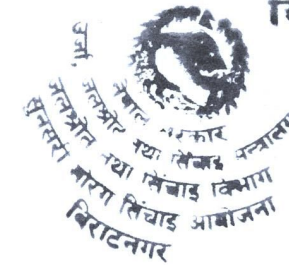 नेपाल सरकार
उर्जा, जलश्रोत तथा सिंचाइ मन्त्रालय
जलश्रोत तथा सिंचाइ विभाग
सुनसरी मोरंग सिंचाइ आयोजना
विराटनगर